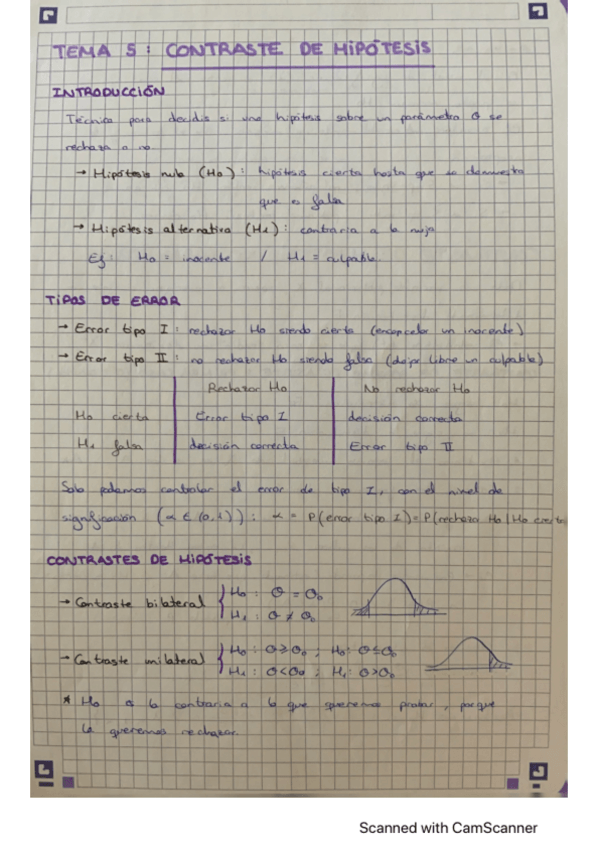 TEMA 5: CONTRASTE DE HIPÓTESIS
INTRODUCCIÓN
Técnica para decidir si una hipótesis sobre un parámetro θ se
rechaza o no.
→ Hipótesis nula (H₀): hipótesis cierta hasta que se demuestra
que es falsa
→ Hipótesis alternativa (H₁): contraria a la nula
Ej: H₀ = inocente / H₁ = culpable.
TIPOS DE ERROR
→ Error tipo I: rechazar H₀ siendo cierta (encarcelar un inocente)
→ Error tipo II: no rechazar H₀ siendo falsa (dejar libre un culpable)
Rechazar H₀ No rechazar H₀
H₀ cierta Error tipo I decisión correcta
H₁ falsa decisión correcta Error tipo II
Solo podemos controlar el error de tipo I, con el nivel de
significación (α ∈ (0,1)): α = P(error tipo I) = P(rechazo H₀ | H₀ cierta
CONTRASTES DE HIPÓTESIS
→ Contraste bilateral { H₀: θ = θ₀
H₁: θ ≠ θ₀
→ Contraste unilateral { H₀: θ ≥ θ₀ ; H₀: θ ≤ θ₀
H₁: θ < θ₀ ; H₁: θ > θ₀
* H₀ es la contraria a lo que queremos probar, porque
la queremos rechazar.
Scanned with CamScanner